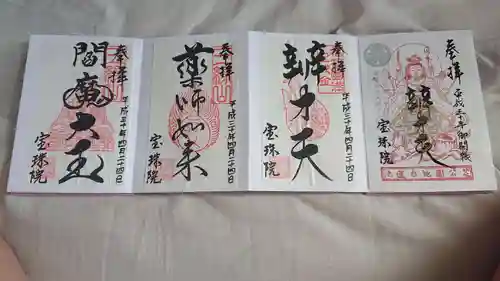 奉拝
閻魔大王
平成三十年四月二十四日
宝珠院
奉拝
薬師如来
平成三十年四月二十四日
宝珠院
奉拝
辨才天
平成三十年四月二十四日
宝珠院
奉拝
辨才天
宝珠院